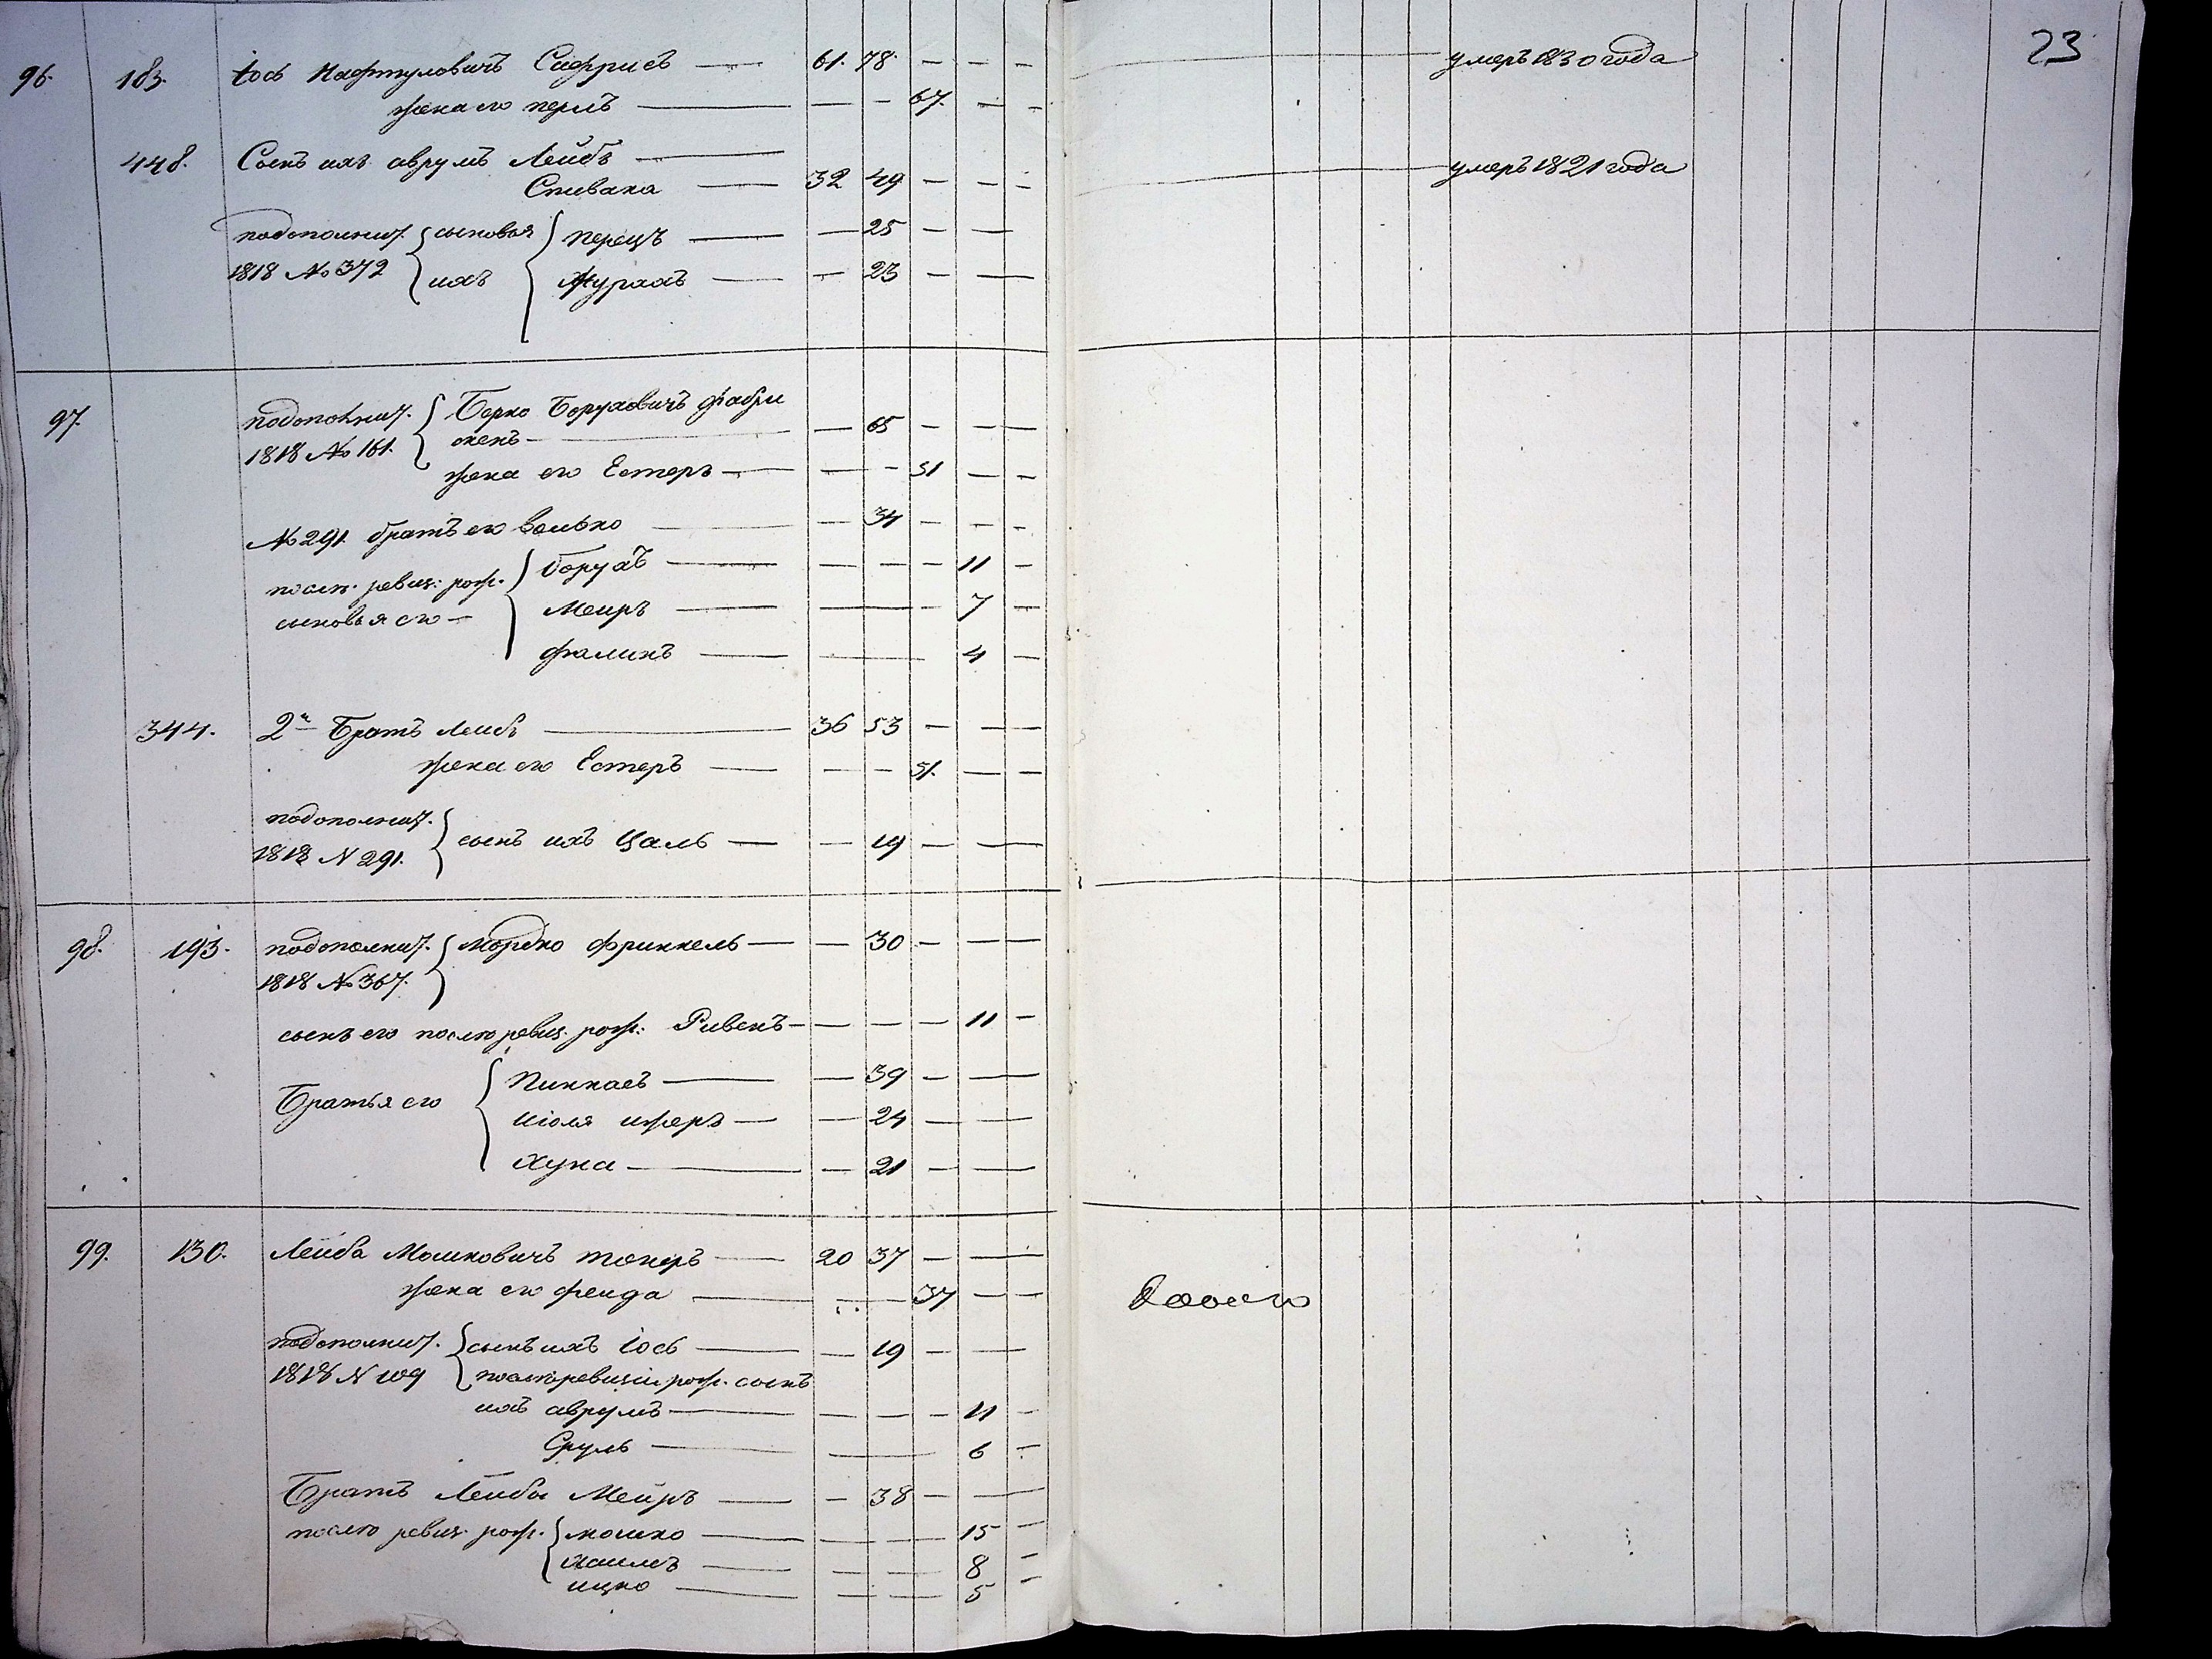 23
96. 183. Іось Нафтуловичъ Саффисъ — 61. 78. — — — умеръ 1830 года
жена его перлъ — — — 67. — —
448. Сынъ ихъ аврумъ Лейбъ —
Спивака — 32 49 — — — умеръ 1821 года
подополнит. сыновья перецъ — — 25 — —
1818 № 372 ихъ — 23 — —
97. подополнит. Берко Боруховичъ фабри
1818 № 161. — 65 — —
жена его Естеръ — — — 51 — —
№ 291 братъ его волько — 34 — — —
Борухъ — — — — 11 —
посл. ревиз: рож.
Меиръ — — — 7 —
сыновья его —
фаликъ — — 4 —
344. 2й Братъ Лейбъ — 36 53 — —
жена его Естеръ — — — 51. — —
подополнит.
сынъ ихъ Цаль — — 19 — —
1818 N 291.
98. 193. подополнит. Мордко Фринкель — — 30 — —
1818 № 367.
сынъ его послѣ ревиз. рож: Рувенъ — — — — 11 —
Пинкасъ — — 39 — —
Братья его
— 24 — —
Хуна — — 21 — —
99. 130. Лейба Мошковичъ токеръ — 20 37 — —
жена его фейга — — 37 — —
подополнит. сынъ ихъ Іось — — 19 — —
1818 N 109 послѣ ревизіи рож. сынъ
ихъ аврумъ — — — — 11 —
Сруль — — 6 —
Братъ Лейбы Меиръ — — 38 — —
послѣ ревиз. рож. мошко — — — 15 —
хаимъ — — — 8 —
ицко — — — 5 —